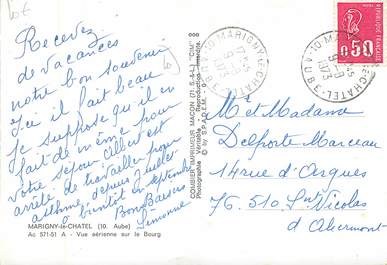 10€
Recevez
de vacances
notre bon souvenir
Ici il fait beau
je suppose qu'il en
fait de même pour
votre séjour
arrêté de travailler pour
asthme, depuis Juillet
à bientôt en septembre
Bons Baisers
Simonne
MARIGNY-le-CHATEL (10. Aube)
Ac 571-51 A - Vue aérienne sur le Bourg
COMBIER IMPRIMEUR MACON (71. S.-&-L.) "CIM"
Photographie Véritable - Reproduction interdite
© by S.P.A.D.E.M.
10 MARIGNY-LE-CHATEL
AUBE
10 MARIGNY-LE-CHATEL
AUBE
0,50
Mr et Madame
Delporte Marceau
14 rue d'Arques
76.510. Snt Nicolas
d'Aliermont